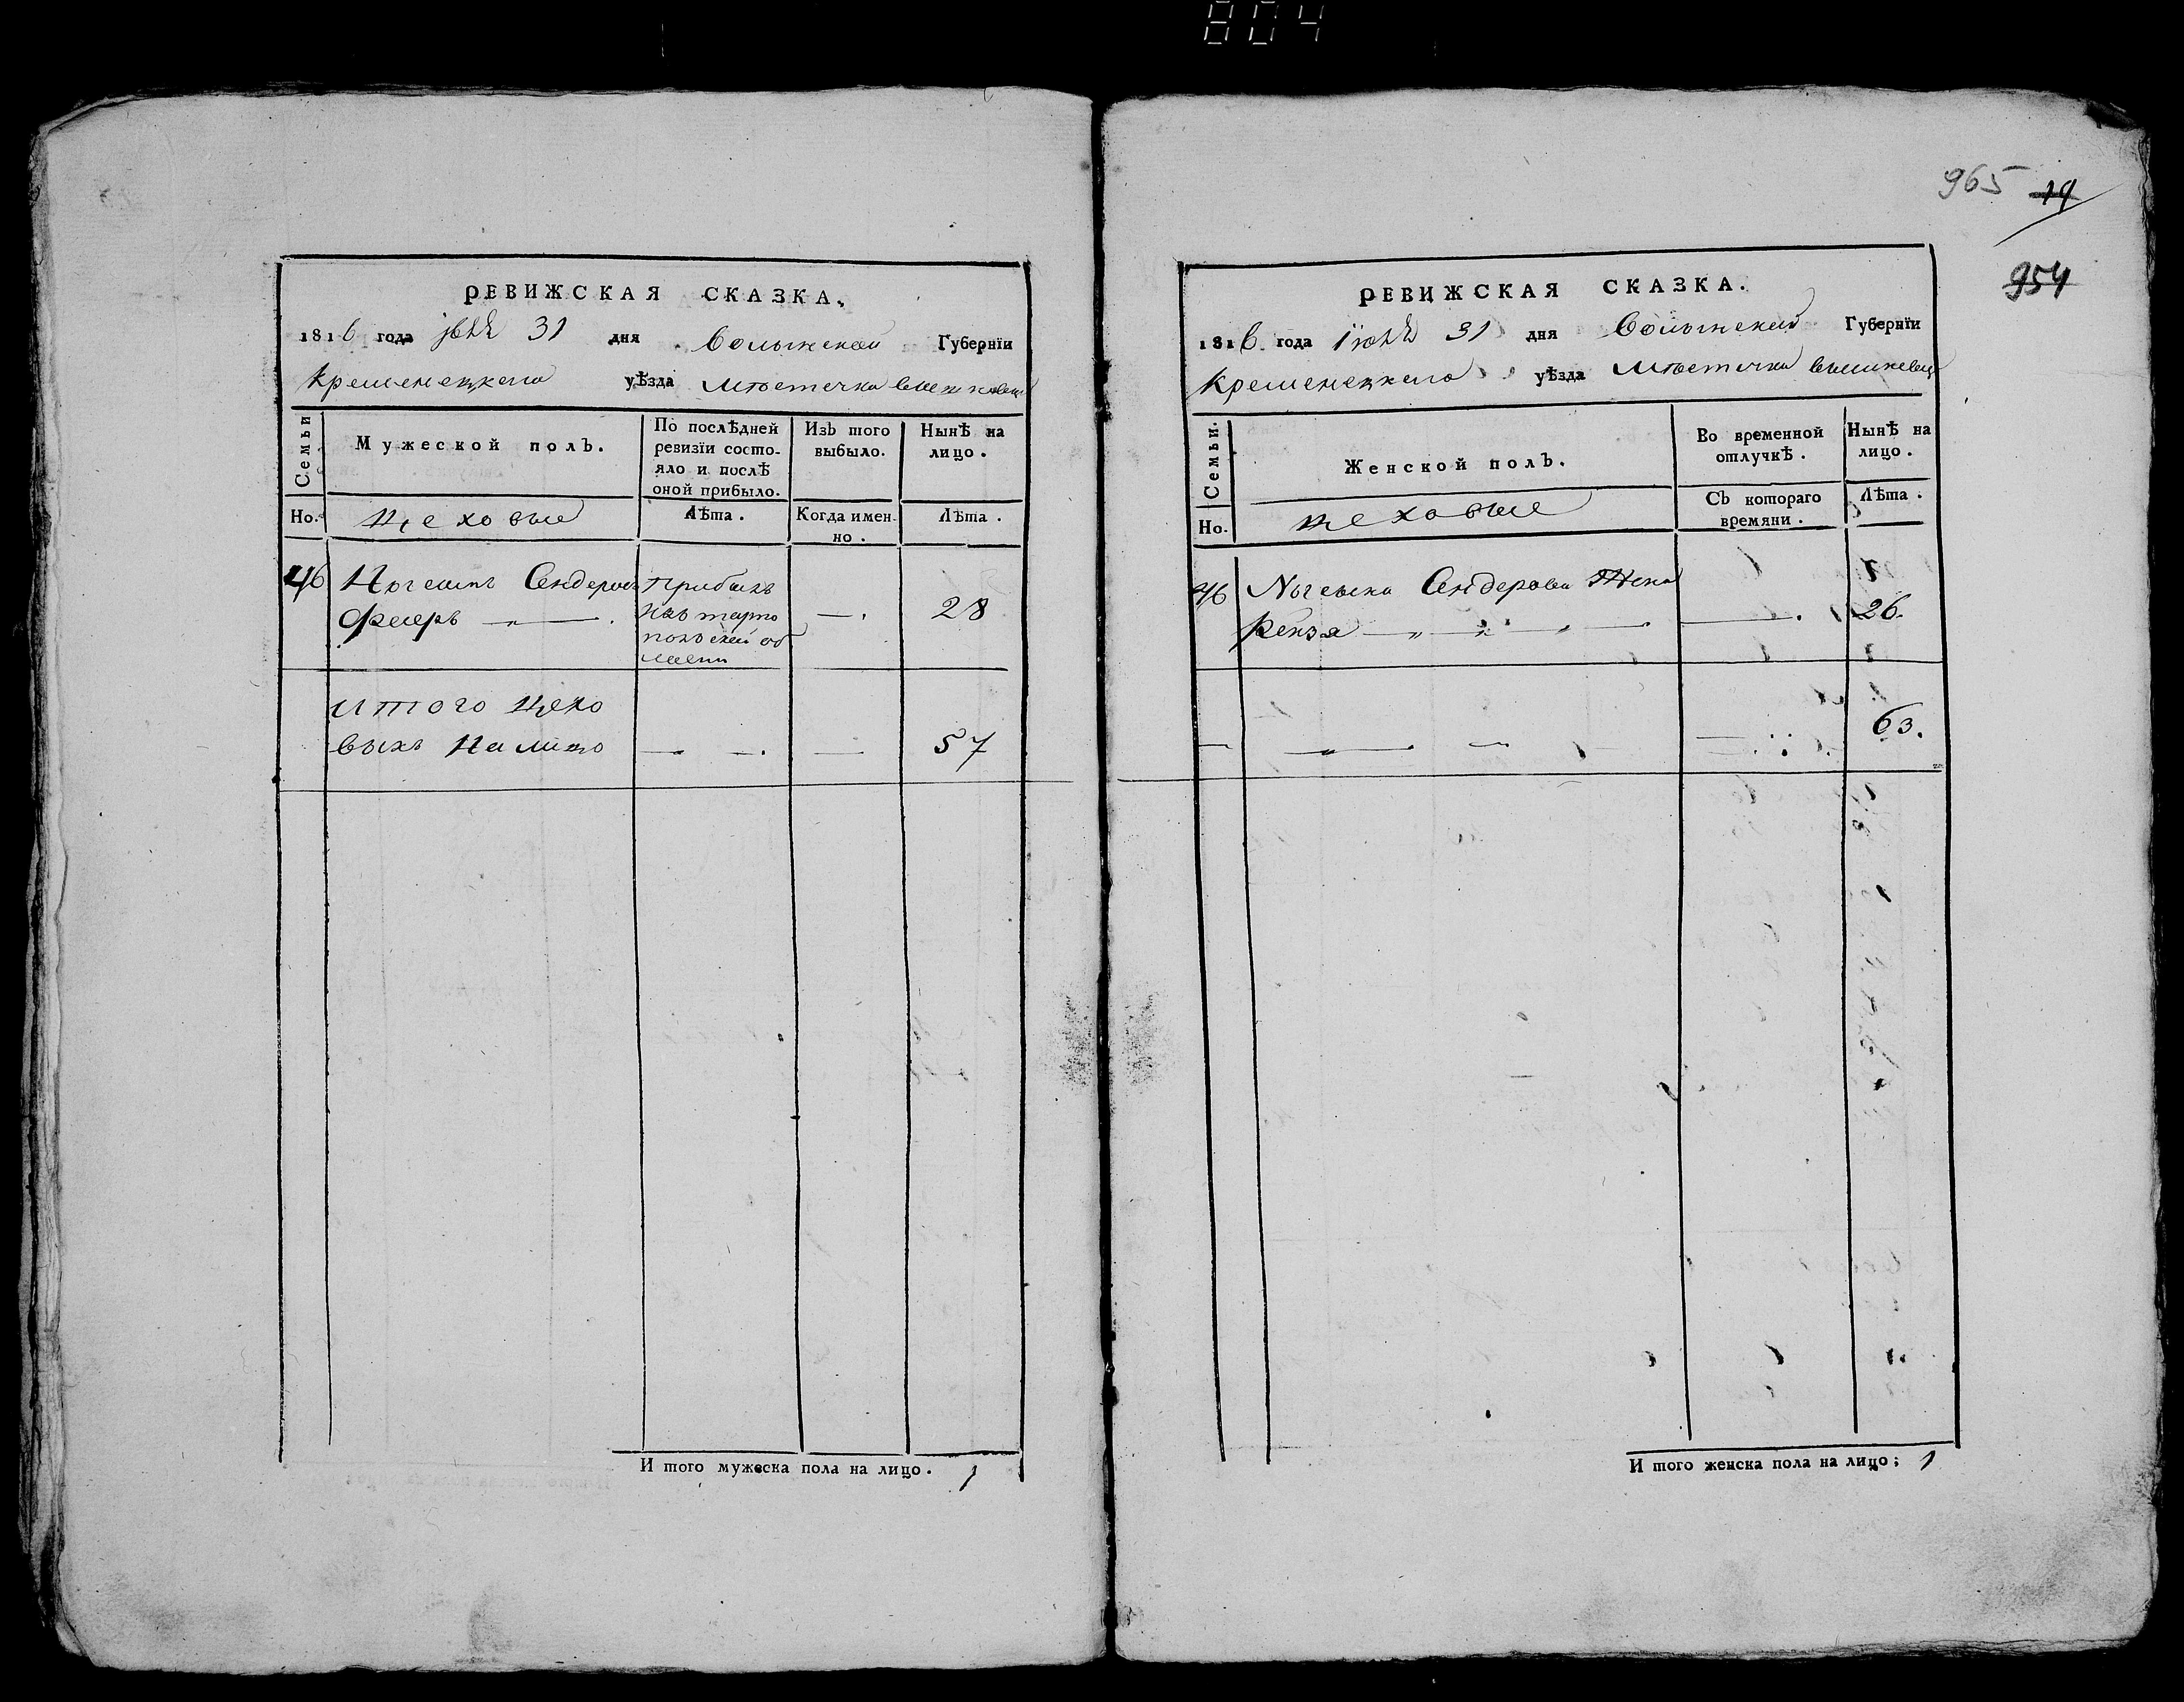 804
РЕВИЖСКАЯ СКАЗКА.
1816 года 31 дня Волынской Губернїи
Кременецкаго уѣзда Мѣстечка
Семьи
Мужеской полЪ.
По послѣдней ревизїи состо-
яло и послѣ
оной прибыло.
ИзЪ того
выбыло.
Нынѣ на
лицо.
Но.
Цеховые
Лѣта.
Когда имен-
но.
Лѣта.
46
Сендеровъ
прибылъ
изъ тарно
польской об
ласти
—.
28
итого цехо
выхъ На лицо
57
И того мужеска пола на лицо. 1
965 19
954
РЕВИЖСКАЯ СКАЗКА.
1816 года Iюля 31 дня Волынской Губернїи
Кременецкаго уѣзда Мѣстечка вишневца
Семьи.
Женской полЪ.
Во временной
отлучкѣ.
Нынѣ на
лицо.
Но.
цеховые
СЪ котораго
времяни.
Лѣта.
46
Сендерова Жена
26.
63.
И того женска пола на лицо; 1